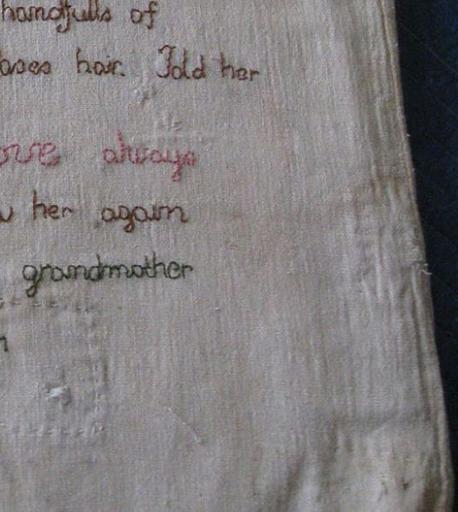 handfulls of
hair. Told her
always
her again
grandmother